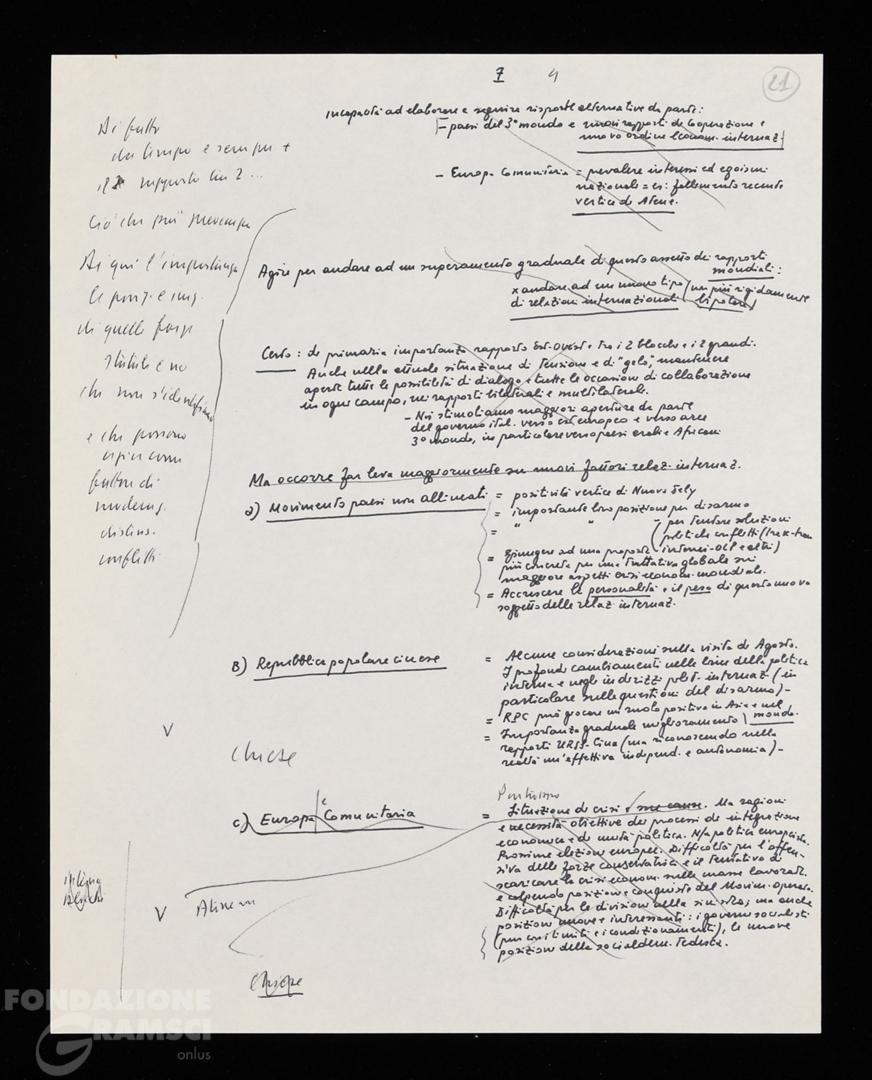 7 4
21
Incapacità ad elaborare e seguire risposte alternative da parte:
- paesi del 3° mondo e nuovi rapporti di cooperazione e
nuovo ordine econom. internaz.
- Europa Comunitaria = prevalere interessi ed egoismi
nazionali = es: fallimento recente
vertice di Atene.
Di fatto
da tempo e sempre +
il rapporto tra 2 ...
Ciò che più preoccupa
Di qui l'importanza
di quelle forze
statuali e no
che non s'identificano
e che possono
agire come
fattori di
conflitti
Agire per andare ad un superamento graduale di questo assetto dei rapporti
mondiali:
x andare ad un nuovo tipo (non più rigidamente
di relazioni internazionali bipolare)
Certo: di primaria importanza rapporto Est-Ovest e tra i 2 blocchi e i 2 grandi.
Anche nella attuale situazione di tensione e di "gelo", mantenere
aperte tutte le possibilità di dialogo e tutte le occasioni di collaborazione
in ogni campo, nei rapporti bilaterali e multilaterali.
- Noi stimoliamo maggiori aperture da parte
del governo ital. verso est europeo e verso aree
3° mondo, in particolare verso paesi arabi e Africani
Ma occorre far leva maggiormente su nuovi fattori relaz. internaz.
a) Movimento paesi non allineati = positività vertice di Nuova Dely
= importante loro posizione per disarmo
= " " - per tentare soluzioni
politiche conflitti (Irak-Iran
interni-OLP e altri)
= Spingere ad una proposta
più concreta per una trattativa globale sui
maggiori aspetti crisi econom. mondiale.
= Accrescere la personalità e il peso di questo nuovo
soggetto delle relaz. internaz.
B) Repubblica popolare cinese
= Alcune considerazioni sulla visita di Agosto.
I profondi cambiamenti nelle linee della politica
interna e negli indirizzi polit. internaz. (in
particolare sulle questioni del disarmo) -
= RPC può giocare un ruolo positivo in Asia e nel
mondo.
= Importanza graduale miglioramento
rapporti URSS-Cina (ma riconoscendo nella
realtà un'effettiva independ. e autonomia) -
V
Chiese
c) Europa Comunitaria
= Situazione di crisi e sue cause. Ma ragioni
e necessità obiettive dei processi di integrazione
economica e di unità politica. N/a politica europeista.
Prossime elezioni europee. Difficoltà per l'offen-
siva delle forze conservatrici e il tentativo di
scaricare la crisi econom. sulle masse lavorat.
e colpendo posizioni e conquiste del Movim. Operaio.
Difficoltà per le divisioni nella sinistra; ma anche
posizioni nuove e interessanti: i governi socialisti
(pur con limiti e i condizionamenti), le nuove
posizioni della socialdem. tedesca.
V
Chiese
FONDAZIONE
GRAMSCI
onlus